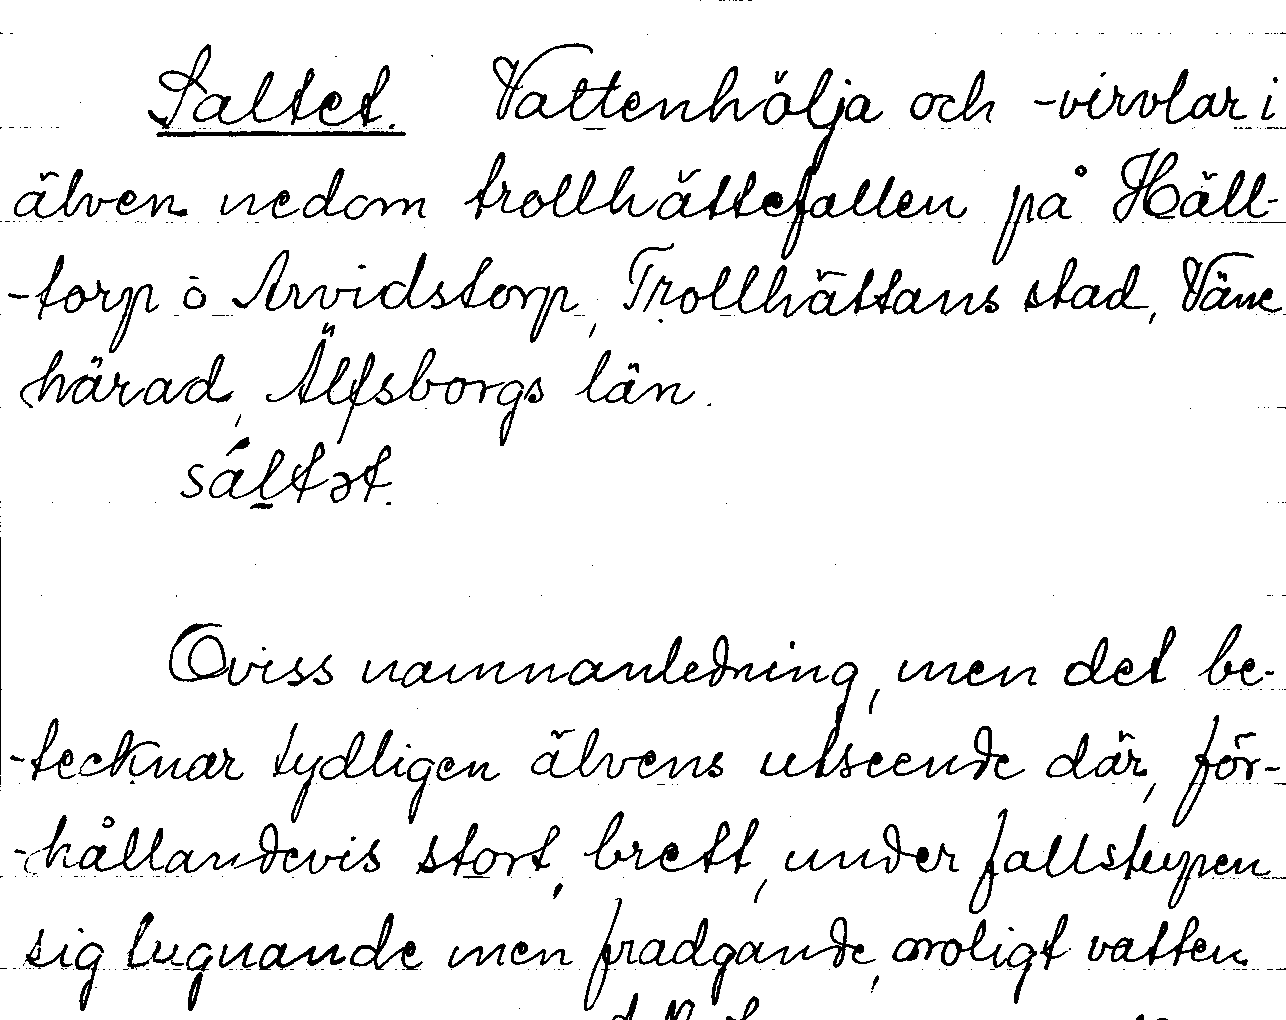 Saltet. Vattenhölja och -virvlar i
älven nedom trollhättefallen på Häll-
-torp o Arvidstorp, Trollhättans stad, Väne
härad, Älfsborgs län.
sáltət.
Oviss namnanledning, men det be-
-tecknar tydligen älvens utseende där, för-
-hållandevis stort, brett, under fallstupen
sig lugnande men fradgande, oroligt vatten